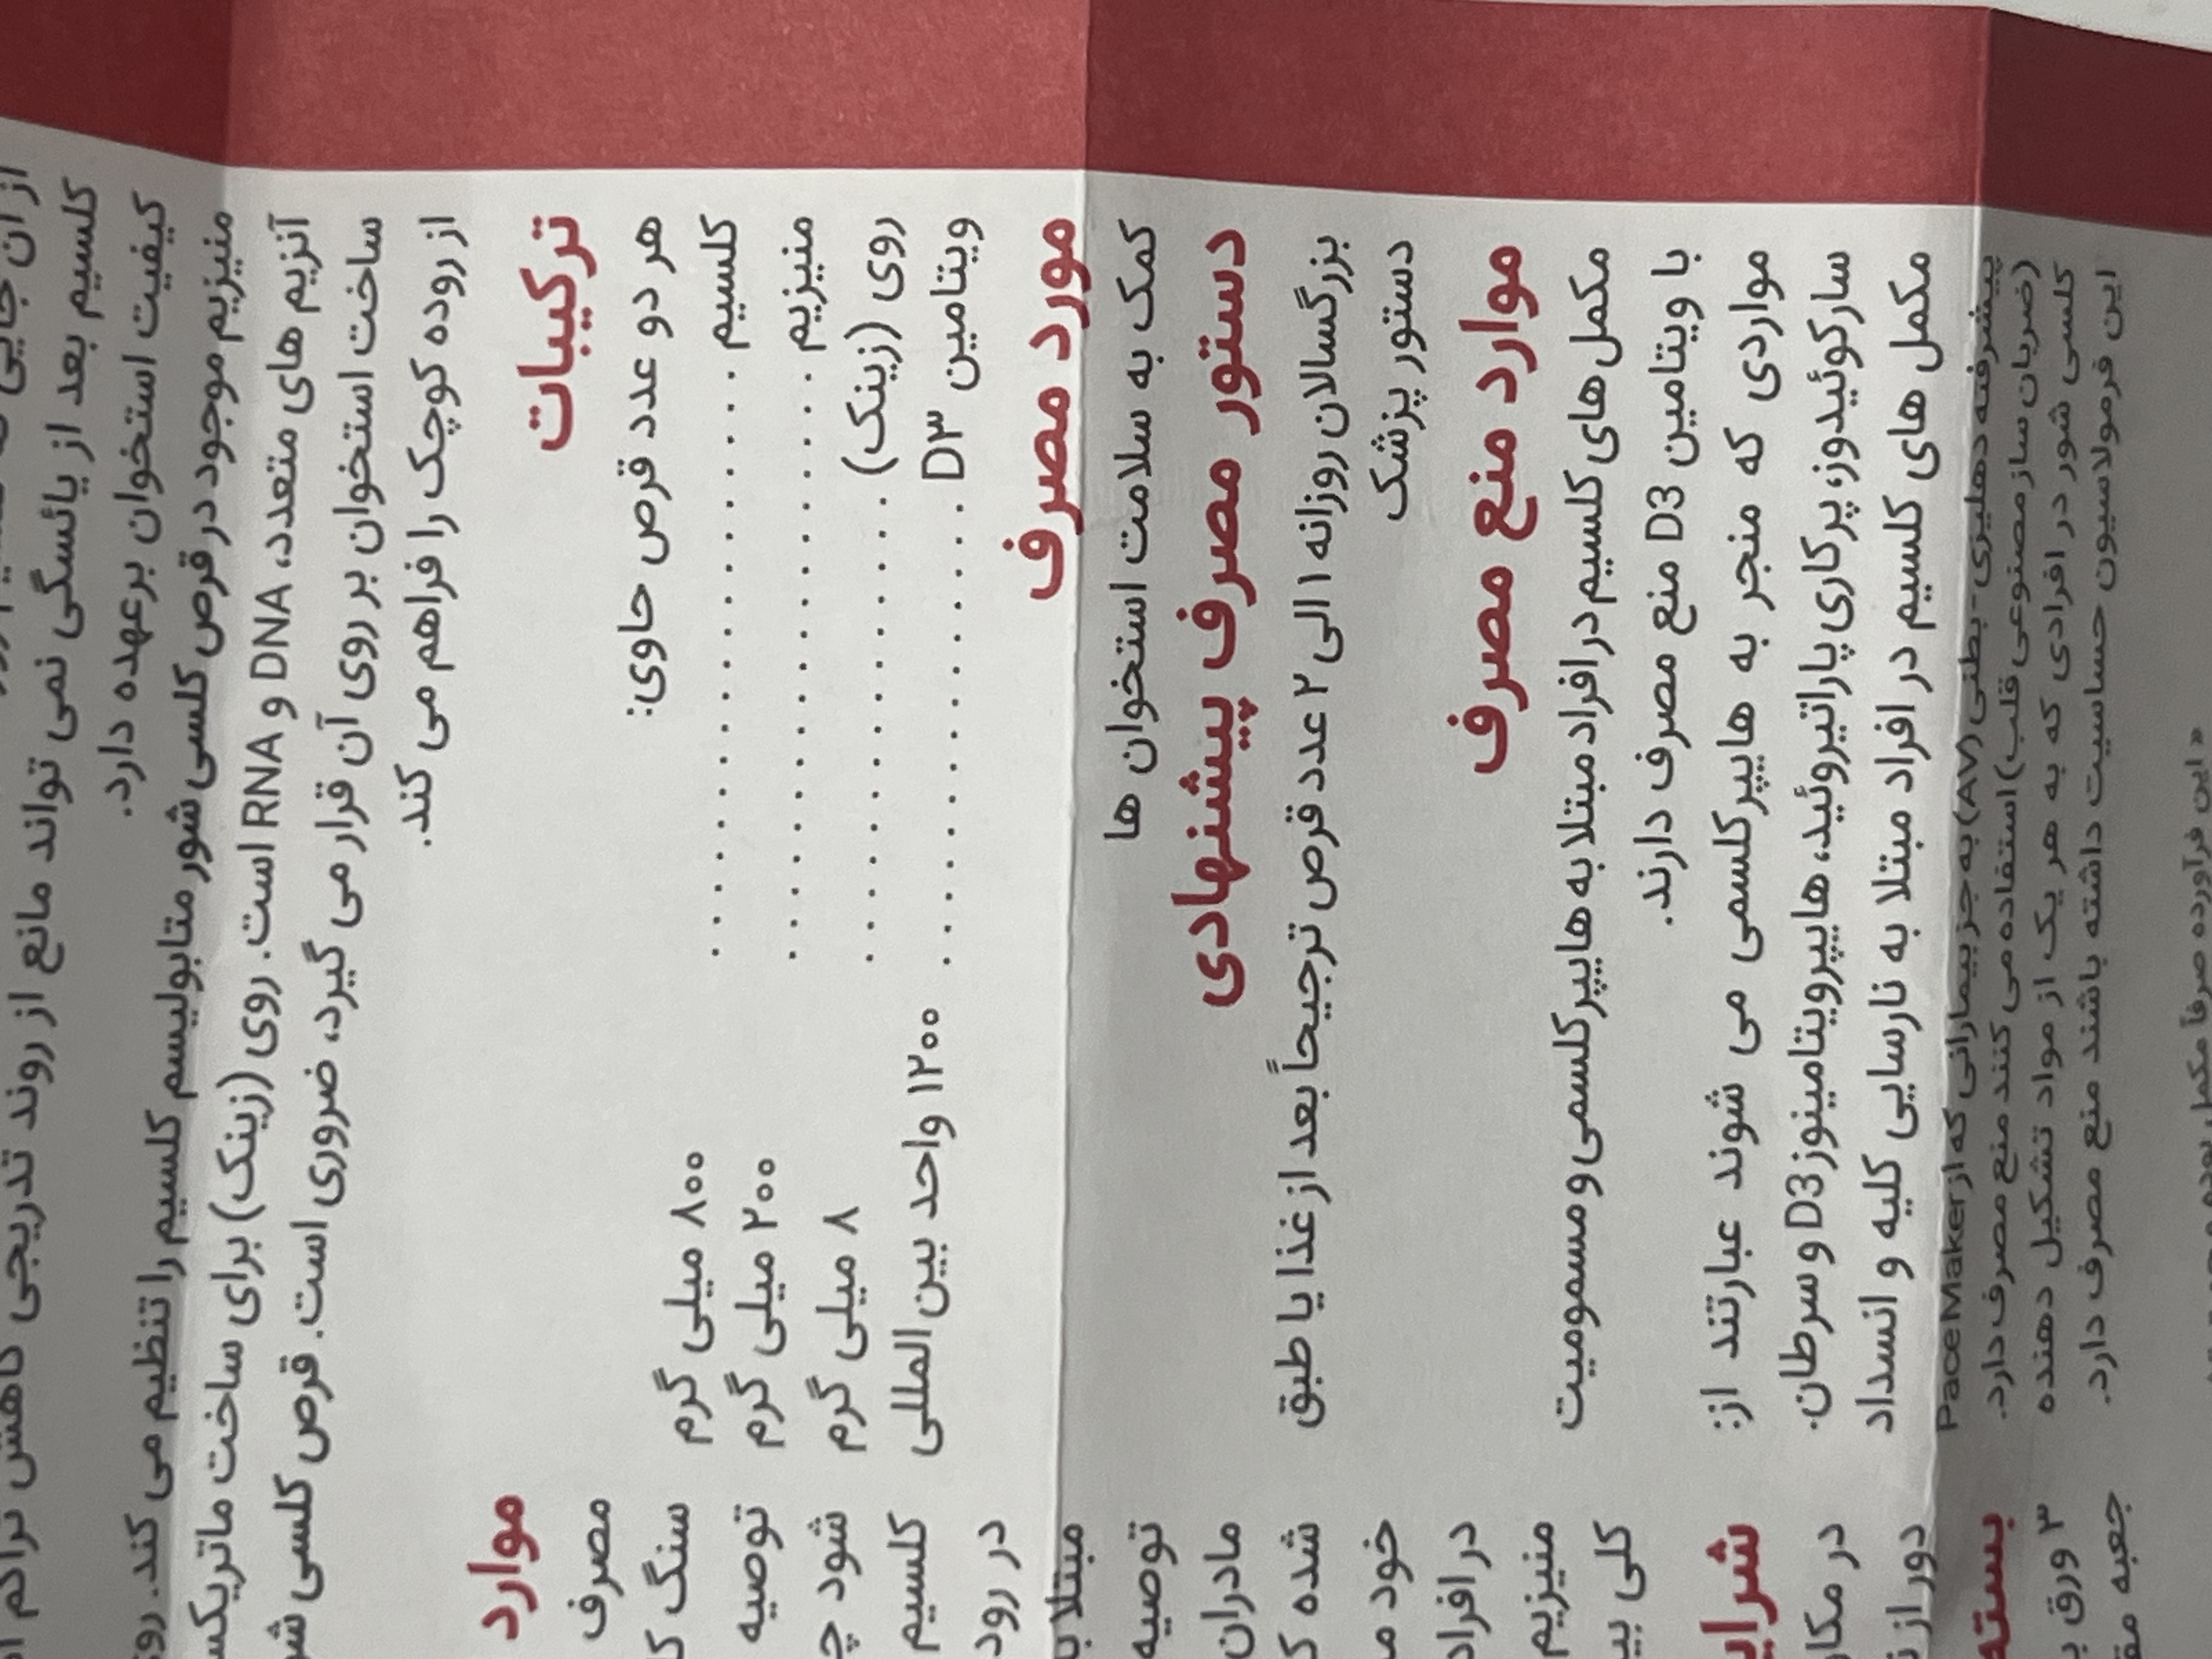 کلسیم بعد از یائسگی نمی تواند مانع از روند تدریجی کاهش تراکم
کیفیت استخوان برعهده دارد.
منیزیم موجود در قرص کلسی شور متابولیسم کلسیم را تنظیم می کند. روی
آنزیم های متعدد، DNA و RNA است. روی (زینک) برای ساخت ماتریکس
ساخت استخوان بر روی آن قرار می گیرد، ضروری است. قرص کلسی شور
از روده کوچک را فراهم می کند.
ترکیبات
هر دو عدد قرص حاوی:
کلسیم . . . . . . . . . . . . . . . . . ۸۰۰ میلی گرم
منیزیم . . . . . . . . . . . . . . . . . ۲۰۰ میلی گرم
روی (زینک) . . . . . . . . . . . . . ۸ میلی گرم
ویتامین D۳ . . . . . . . . . . . . . ۱۲۰۰ واحد بین المللی
مورد مصرف
کمک به سلامت استخوان ها
دستور مصرف پیشنهادی
بزرگسالان روزانه ۱ الی ۲ عدد قرص ترجیحاً بعد از غذا یا طبق
دستور پزشک
موارد منع مصرف
مکمل های کلسیم در افراد مبتلا به هایپرکلسمی و مسمومیت
با ویتامین D3 منع مصرف دارند.
مواردی که منجر به هایپرکلسمی می شوند عبارتند از:
سارکوئیدوز، پرکاری پاراتیروئید، هایپرویتامینوز D3 و سرطان.
مکمل های کلسیم در افراد مبتلا به نارسایی کلیه و انسداد
پیشرفته دهلیزی-بطنی (AV) به جز بیمارانی که از Pace Maker
(ضربان ساز مصنوعی قلب) استفاده می کنند منع مصرف دارد.
کلسی شور در افرادی که به هر یک از مواد تشکیل دهنده
این فرمولاسیون حساسیت داشته باشند منع مصرف دارد.
« این فرآورده صرفاً مکمل بوده و
موارد
مصرف
سنگ
توصیه
شود
کلسیم
در
مبتلا
توصیه
مادران
شده
خود
در افراد
منیزیم
کلی
در
دور از
۳ ورق
جعبه